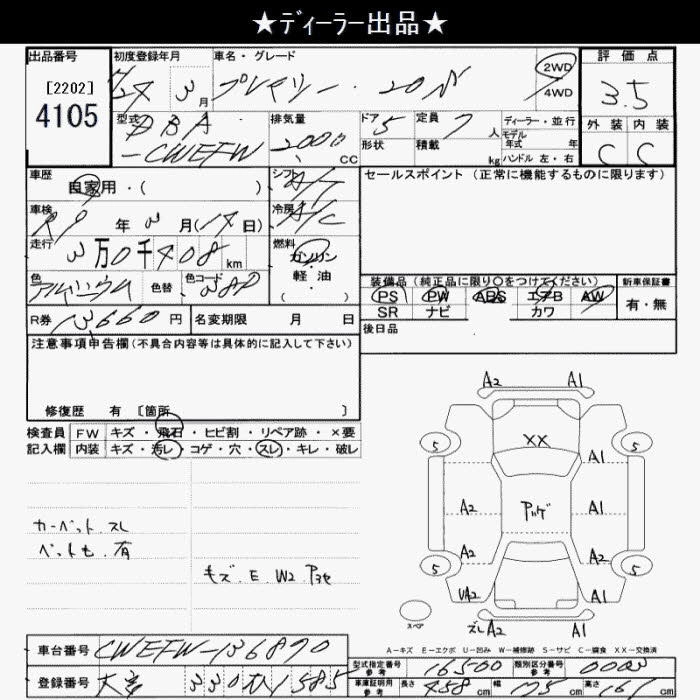 ★ディーラー出品★
出品番号 初度登録年月 車名・グレード 評価点
[2202]
4105
24 3月 プレマシー・20 2WD 4WD 3.5
型式 DBA-CWEFW 排気量 2000cc ドア 5 定員 7人 ディーラー・並行
形状 積載 kg モデル年式 年 ハンドル 左・右
外装 内装
C C
車歴 自家用・( ) シフト A/T セールスポイント (正常に機能するものに限ります)
車検 R1年3月(14日) 冷房 A/C
走行 3万0千408km 燃料 ガソリン・軽油・( )
色 アルミニウム 色替 色コード 38P
装備品 (純正品に限り○をつけてください) 新車保証書
PS PW ABS エアB AW 有・無
SR ナビ カワ
R券 13660円 名変期限 月 日 後日品
注意事項申告欄(不具合内容等は具体的に記入して下さい)
修復歴 有 [箇所 ]
検査員 FW キズ・飛石・ヒビ割・リペア跡・×要
記入欄 内装 キズ・汚レ・コゲ・穴・スレ・キレ・破レ
カーペット.スレ
ペット毛.有
キズ.E.W2.Pヨセ
A2 A1
5 XX 5
A1
A2 A1
A2 A2
5 5
UA2 A1
スペア
ズレA2 A1
A-キズ E-エクボ U-凹み W-補修跡 S-サビ C-腐食 XX-交換済
車台番号 CWEFW-136890
登録番号 330 585
型式指定番号 参考 16500 類別区分番号 参考 0003
車庫証明用 参考 長さ 458cm 幅 175cm 高さ 161cm